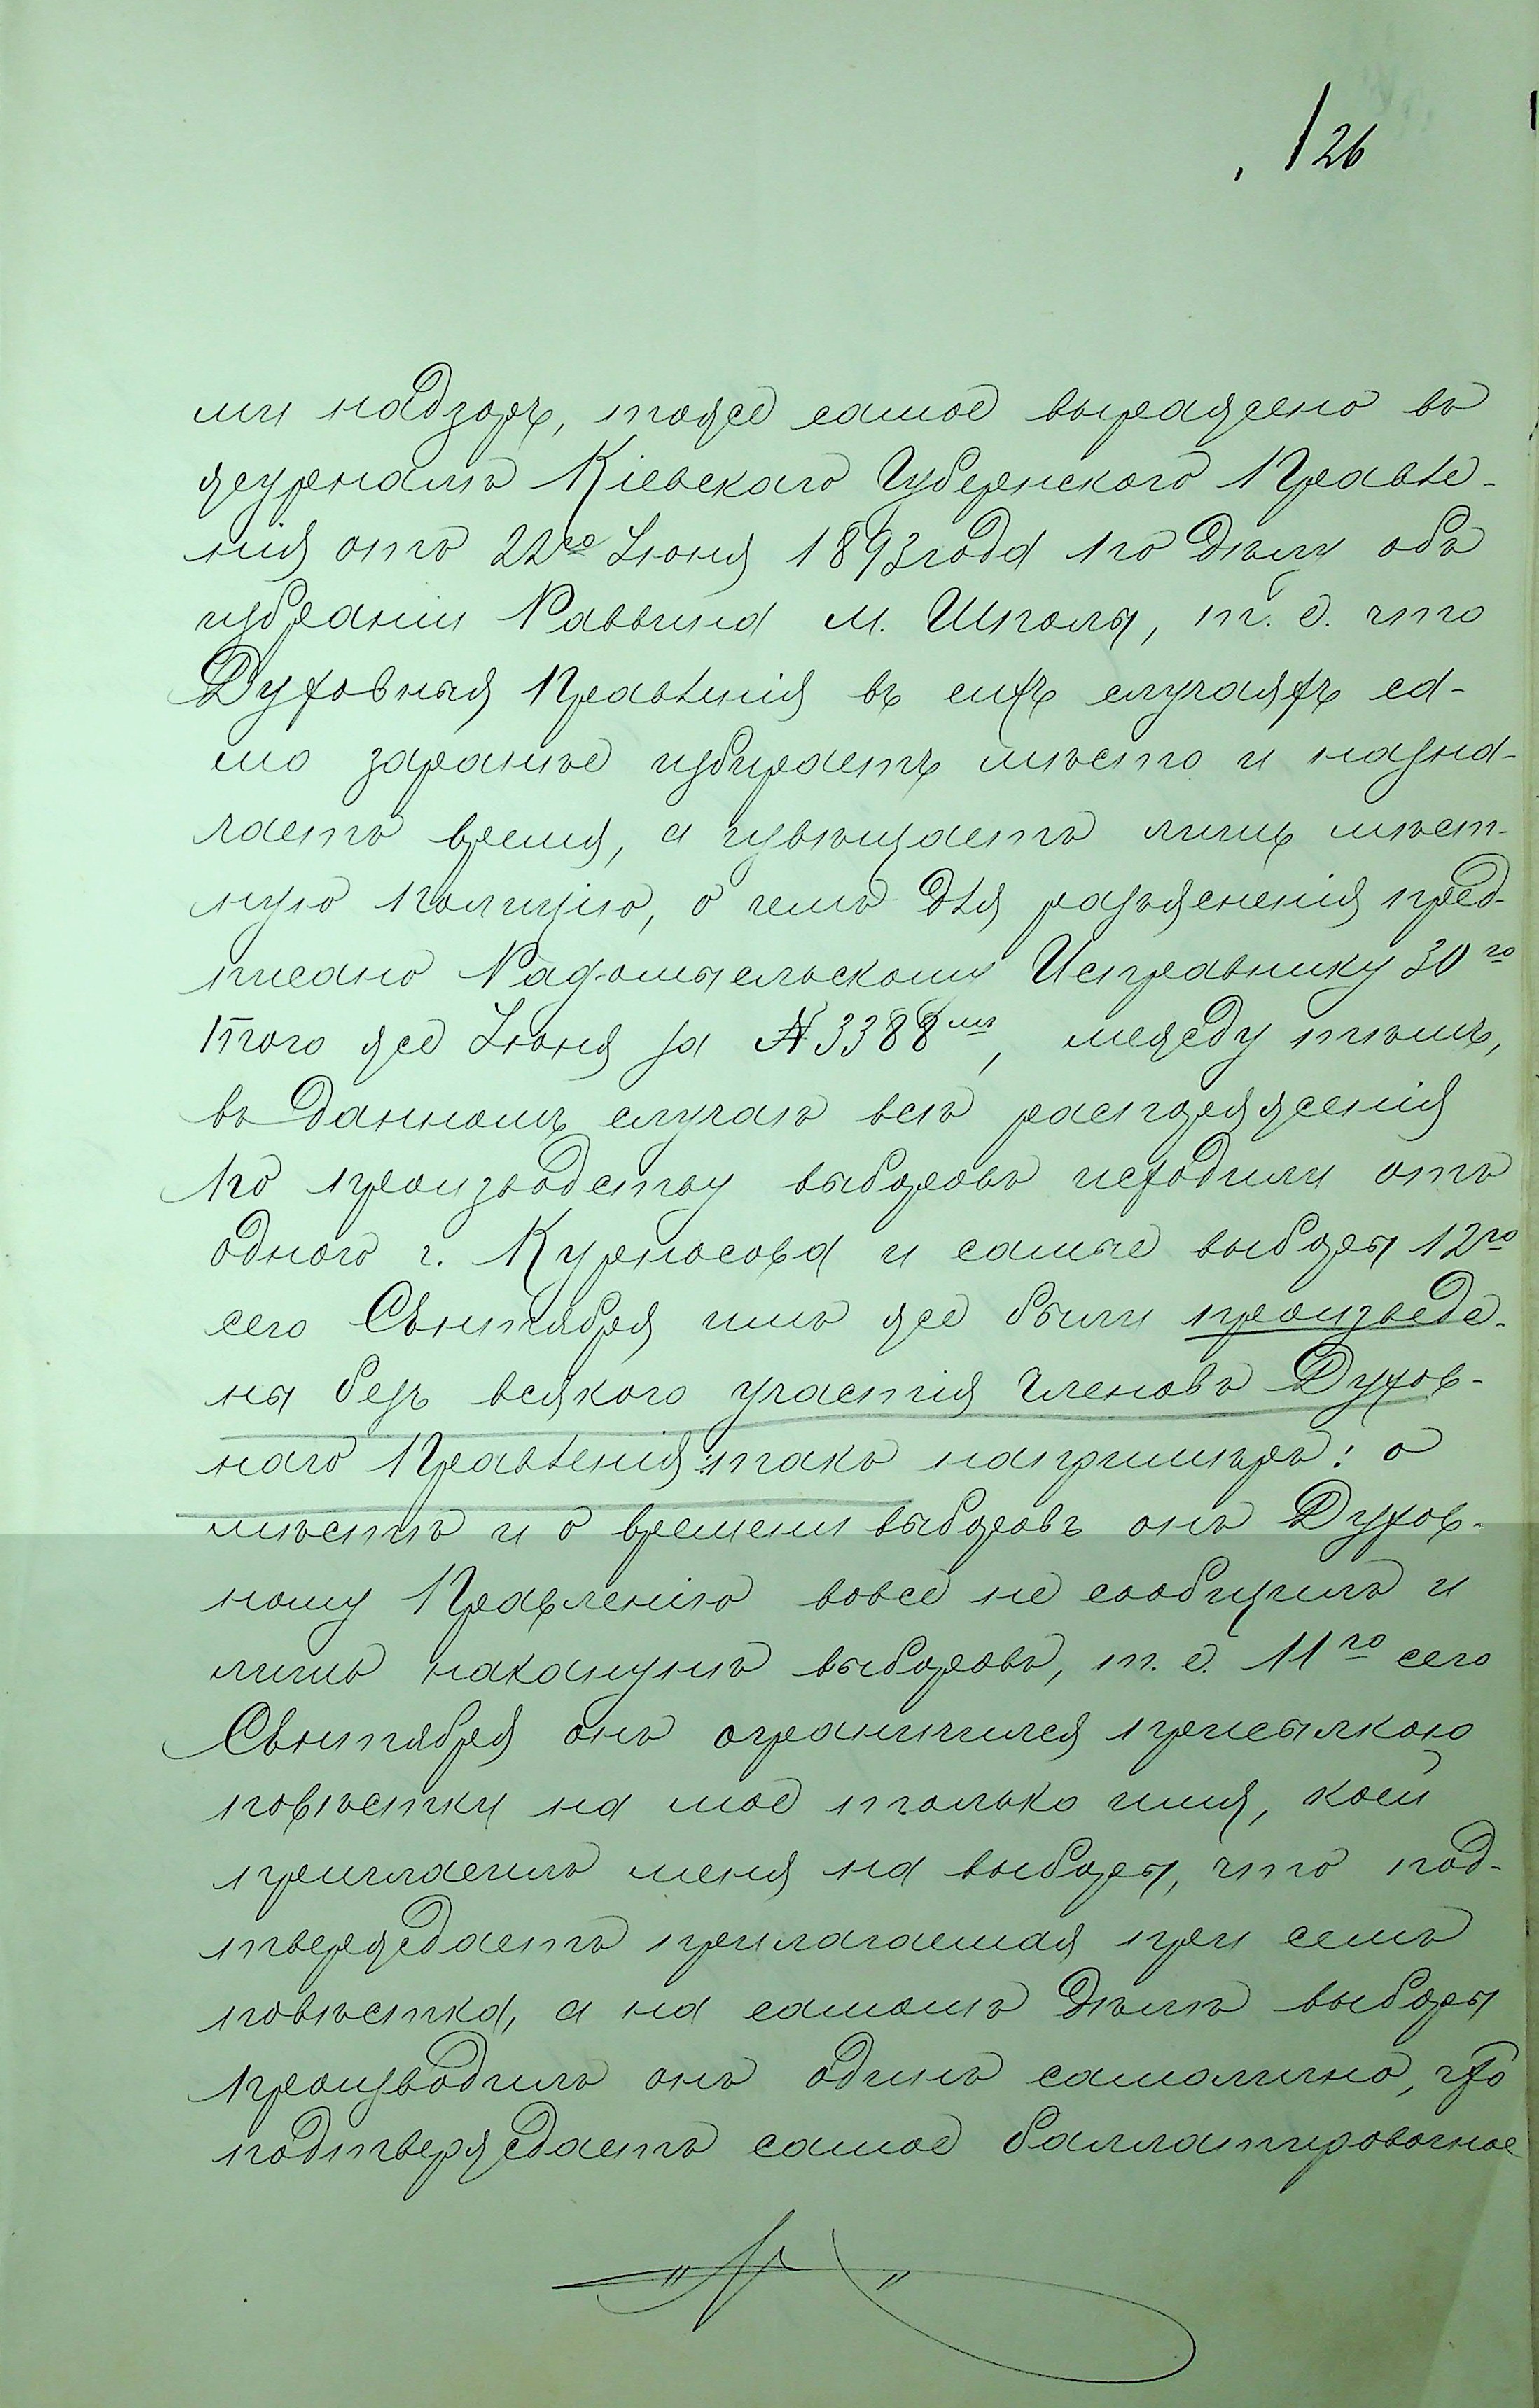 126
ми надзоръ, тоже самое выражено въ
журналѣ Кіевскаго Губернскаго Правле-
нія отъ 22го Іюня 1893 года по дѣлу объ
избраніи Раввина м. Шполы, т. е. что
Духовныя Правленія въ сихъ случаяхъ са-
мо заранѣе избираетъ мѣсто и назна-
чаетъ время, а извѣщаетъ лишь мѣст-
ную полицію, о чемъ для разъясненія пред-
писано Радомысльскому Исправнику 30го
того же Іюня за № 3388мъ, между тѣмъ,
въ данномъ случаѣ всѣ распоряженія
по производству выборовъ исходили отъ
одного г. Курносова и самые выборы 12го
сего Сентября имъ же были произведе-
ны безъ всякого участія Членовъ Духов-
наго Правленія: такъ напримѣръ: о
мѣстѣ и о времени выборовъ онъ Духов-
ному Правленію вовсе не сообщилъ и
лишь наканунѣ выборовъ, т. е. 11го сего
Сентября онъ ограничился присылкою
повѣстки на мое только имя, коей
пригласилъ меня на выборы, что под-
тверждаетъ прилагаемая при семъ
повѣстка, а на самомъ дѣлѣ выборы
производилъ онъ одинъ самолично, что
подтверждаетъ самое баллатировочное